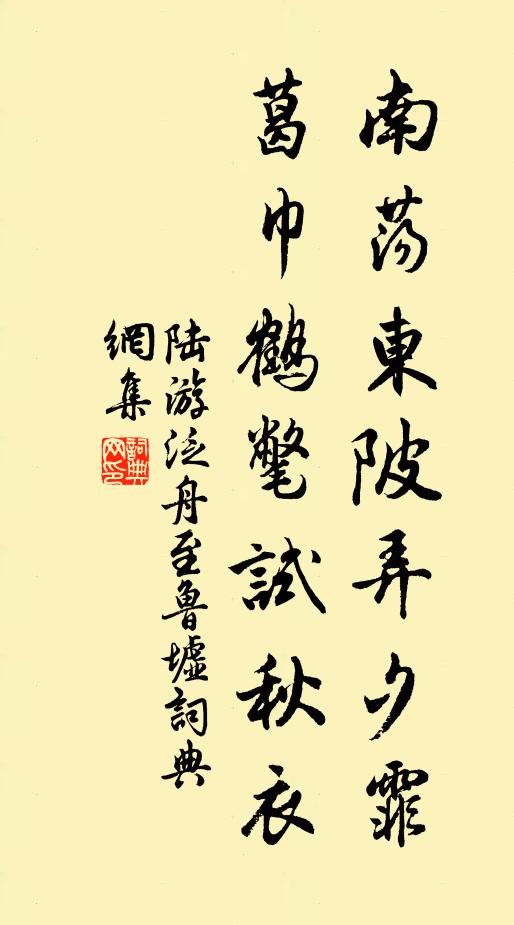 南蕩東陂弄夕霏
葛巾鶴氅試秋衣
陸游泛舟至魯墟詞典
網集
詞典網印